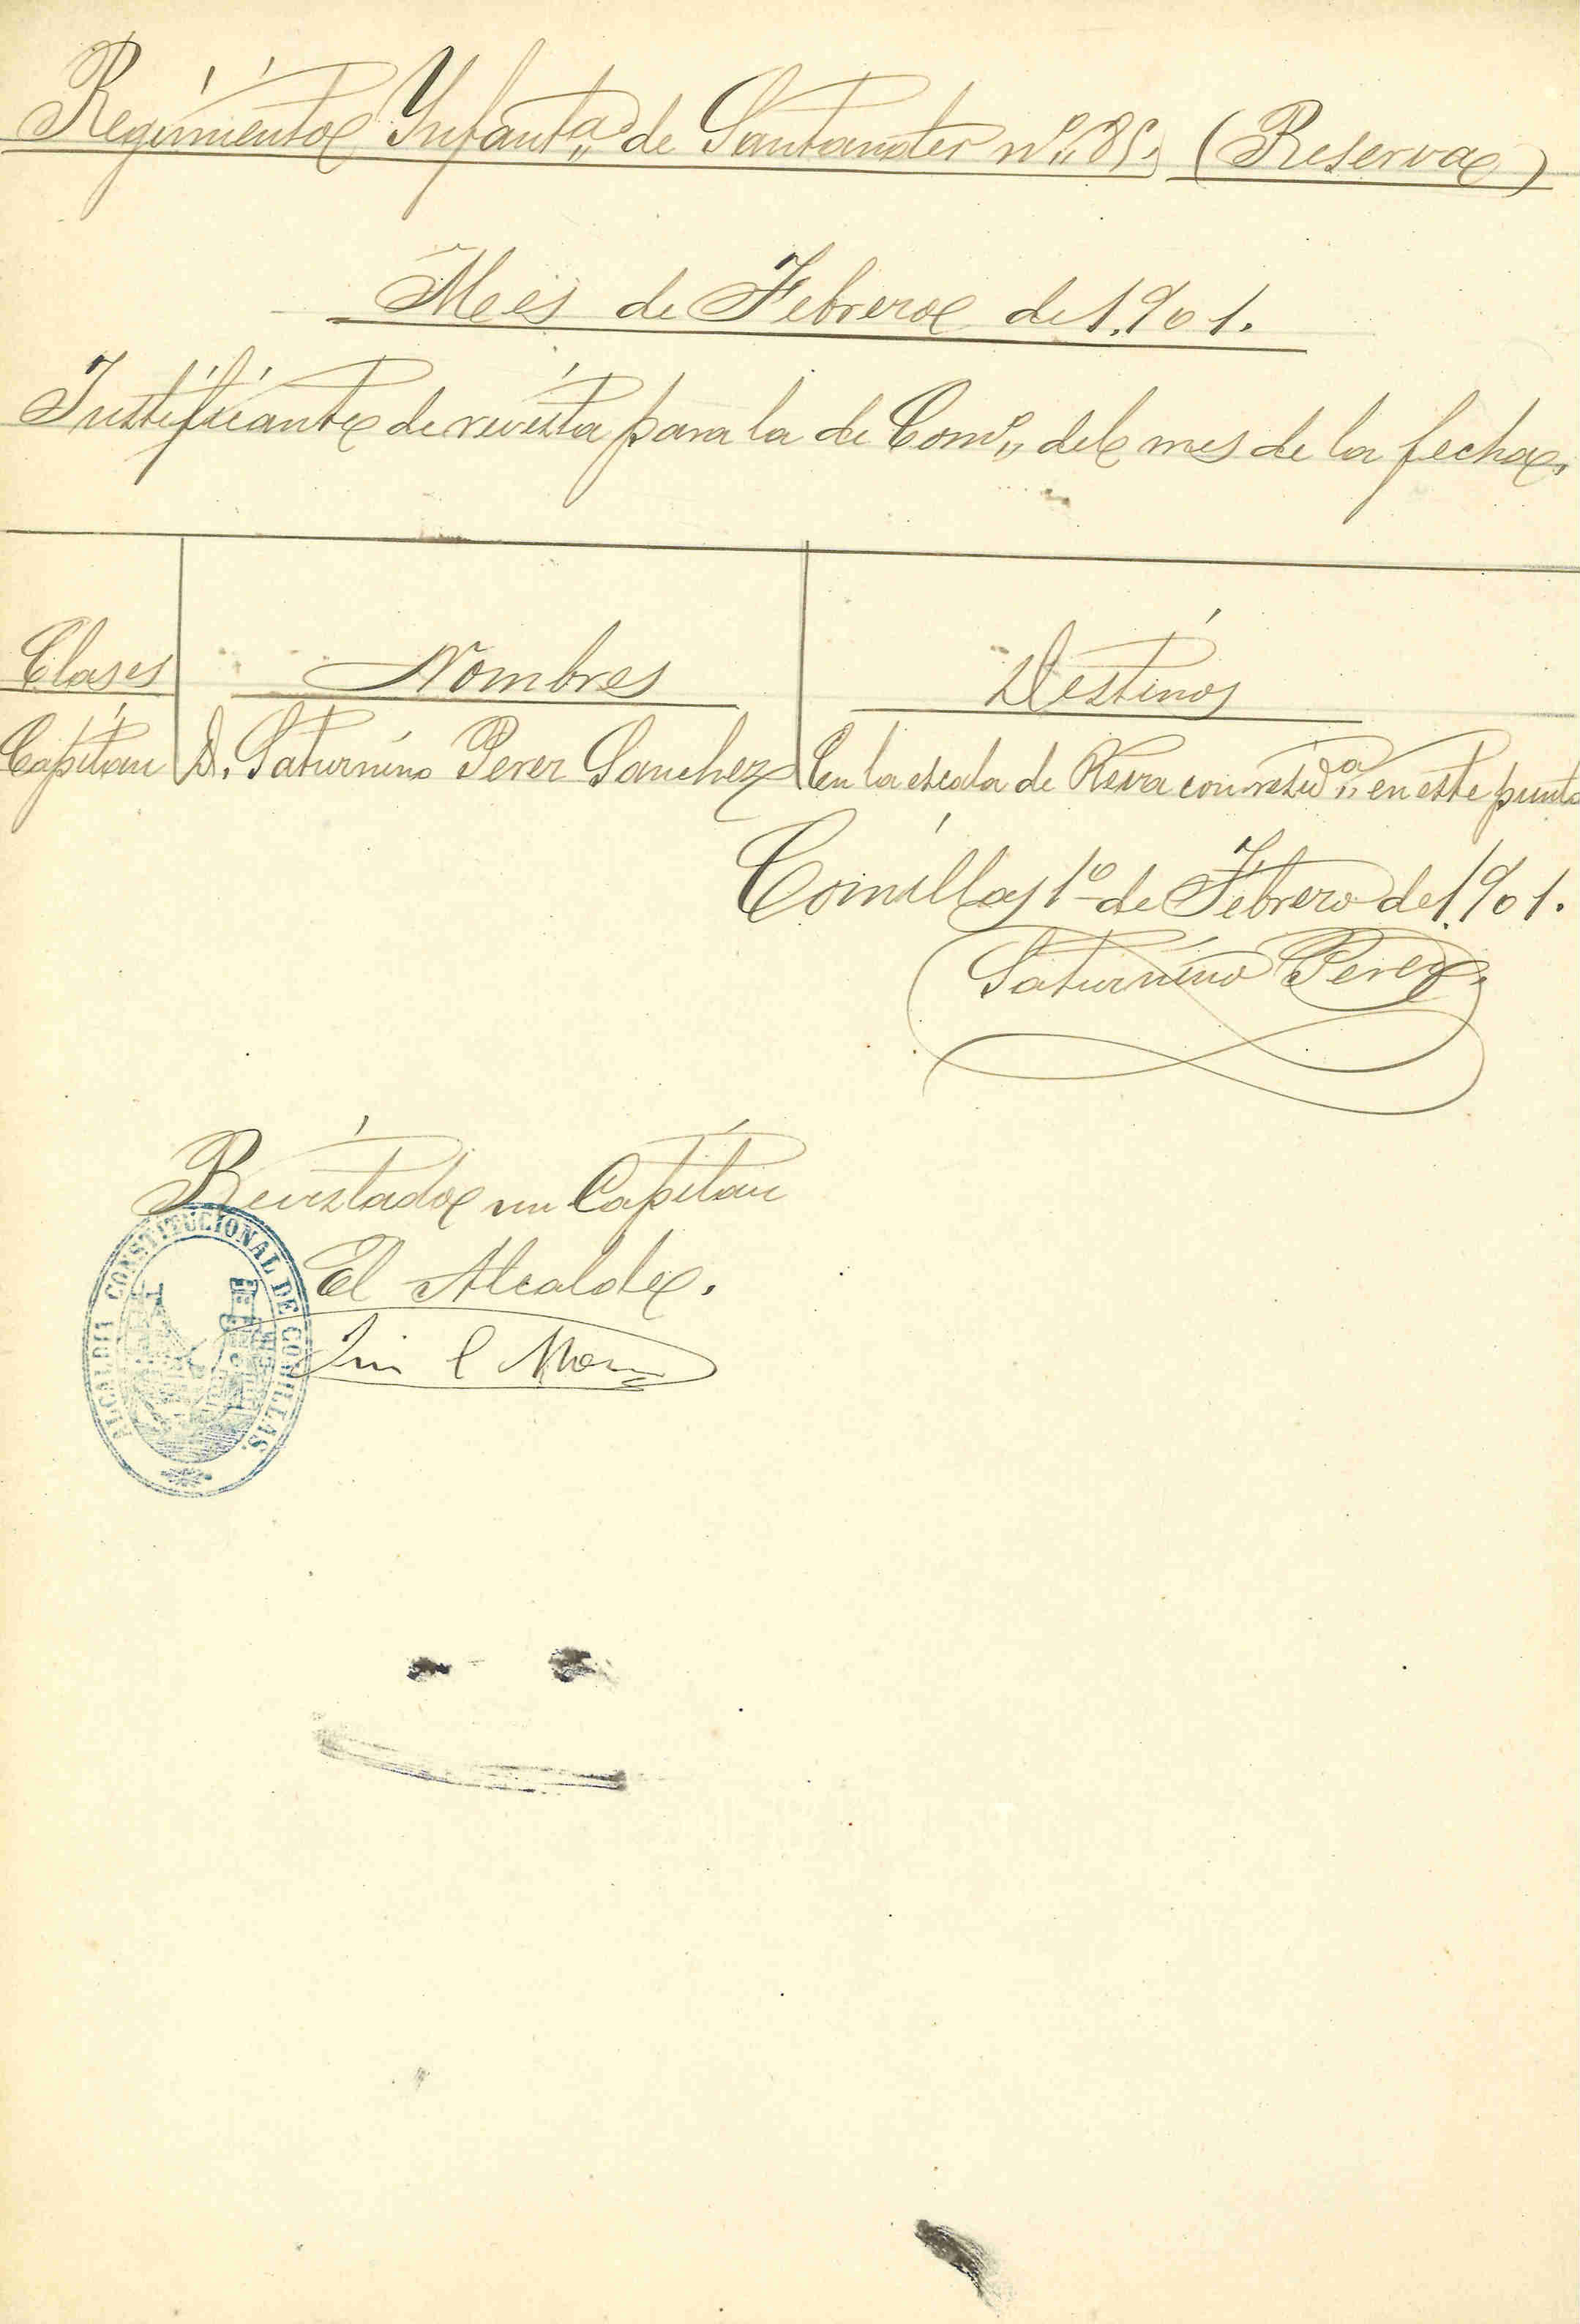 Regimiento Infant.ª de Santander nº 85. (Reserva)
Mes de Febrero de 1.901.
Justificante de revista para la de Comº del mes de la fecha.
Clases Nombres Destinos
Capitan D. Saturnino Perez Sanchez En la escala de Resva con residª en este punto
Comillas 1º de Febrero de 1.901.
Saturnino Perez.
Revistado un Capitan
El Alcalde.
ALCALDIA CONSTITUCIONAL DE COMILLAS.